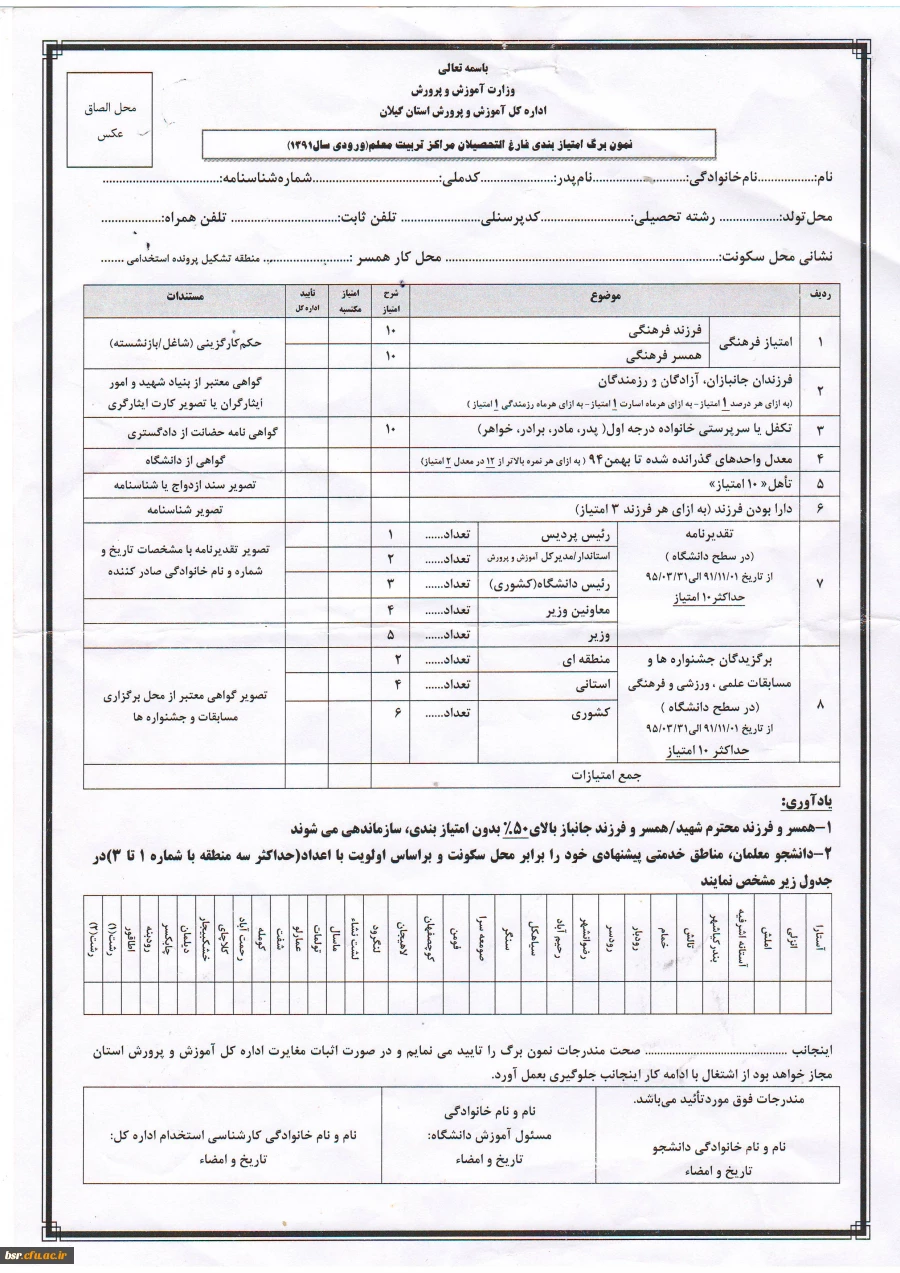 باسمه تعالی
وزارت آموزش و پرورش
اداره کل آموزش و پرورش استان گیلان
محل الصاق
عکس
نمون برگ امتیاز بندی فارغ التحصیلان مراکز تربیت معلم(ورودی سال۱۳۹۱)
نام:................نام‌خانوادگی:........................نام‌پدر:.....................کدملی:............................شماره‌شناسنامه:................................
محل‌تولد:................. رشته تحصیلی:.........................کدپرسنلی....................... تلفن ثابت:............................... تلفن همراه:.................
نشانی محل سکونت:.............................................................................. محل کار همسر :........................ منطقه تشکیل پرونده استخدامی .......
ردیف موضوع شرح امتیاز امتیاز مکتسبه تأیید اداره‌کل مستندات
۱ امتیاز فرهنگی فرزند فرهنگی ۱۰ حکم‌کارگزینی (شاغل/بازنشسته)
همسر فرهنگی ۱۰
۲ فرزندان جانبازان، آزادگان و رزمندگان گواهی معتبر از بنیاد شهید و امور
(به ازای هر درصد ۱ امتیاز- به ازای هرماه اسارت ۱ امتیاز- به ازای هرماه رزمندگی ۱ امتیاز ) ایثارگران یا تصویر کارت ایثارگری
۳ تکفل یا سرپرستی خانواده درجه اول( پدر، مادر، برادر، خواهر) ۱۰ گواهی نامه حضانت از دادگستری
۴ معدل واحدهای گذرانده شده تا بهمن۹۴ ( به ازای هر نمره بالاتر از ۱۲ در معدل ۲ امتیاز) گواهی از دانشگاه
۵ تأهل« ۱۰ امتیاز» تصویر سند ازدواج یا شناسنامه
۶ دارا بودن فرزند (به ازای هر فرزند ۳ امتیاز) تصویر شناسنامه
۷ تقدیرنامه رئیس پردیس تعداد...... ۱ تصویر تقدیرنامه با مشخصات تاریخ و
(در سطح دانشگاه ) استاندار/مدیرکل آموزش و پرورش تعداد...... ۲ شماره و نام خانوادگی صادر کننده
از تاریخ ۹۱/۱۱/۰۱ الی۹۵/۰۳/۳۱ رئیس دانشگاه(کشوری) تعداد...... ۳
حداکثر ۱۰ امتیاز معاونین وزیر تعداد...... ۴
وزیر تعداد...... ۵
۸ برگزیدگان جشنواره ها و منطقه ای تعداد...... ۲ تصویر گواهی معتبر از محل برگزاری
مسابقات علمی ، ورزشی و فرهنگی استانی تعداد...... ۴ مسابقات و جشنواره ها
(در سطح دانشگاه ) کشوری تعداد...... ۶
از تاریخ ۹۱/۱۱/۰۱ الی۹۵/۰۳/۳۱
حداکثر ۱۰ امتیاز
جمع امتیازات
یادآوری:
۱-همسر و فرزند محترم شهید/همسر و فرزند جانباز بالای۵۰٪ بدون امتیاز بندی، سازماندهی می شوند
۲-دانشجو معلمان، مناطق خدمتی پیشنهادی خود را برابر محل سکونت و براساس اولویت با اعداد(حداکثر سه منطقه با شماره ۱ تا ۳)در
جدول زیر مشخص نمایند
آستارا
انزلی
املش
آستانه اشرفیه
بندرکیاشهر
تالش
خمام
رودبار
رودسر
رضوانشهر
رحیم آباد
سیاهکل
سنگر
صومعه سرا
فومن
کوچصفهان
لاهیجان
لنگرود
لشت نشاء
ماسال
عمارلو
تولمات
شفت
کومله
رحمت آباد
کلاچای
خشکبیجار
دیلمان
چابکسر
رودبنه
اطاقور
رشت(۱)
رشت(۲)
اینجانب ........................................ صحت مندرجات نمون برگ را تایید می نمایم و در صورت اثبات مغایرت اداره کل آموزش و پرورش استان
مجاز خواهد بود از اشتغال با ادامه کار اینجانب جلوگیری بعمل آورد.
مندرجات فوق موردتأئید می‌باشد.
نام و نام خانوادگی دانشجو
تاریخ و امضاء
نام و نام خانوادگی
مسئول آموزش دانشگاه:
تاریخ و امضاء
نام و نام خانوادگی کارشناسی استخدام اداره کل:
تاریخ و امضاء
bsr.cfu.ac.ir